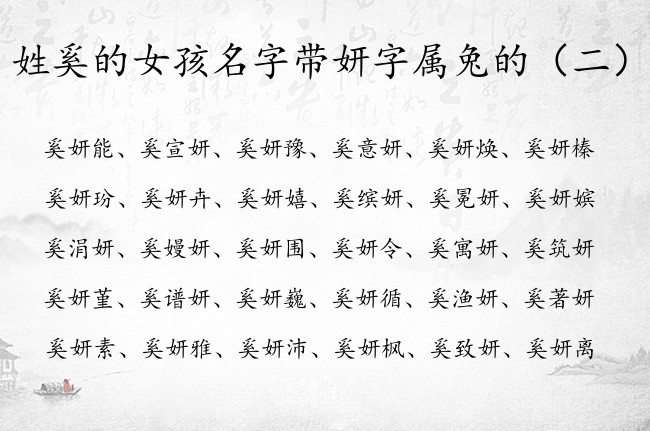 姓奚的女孩名字带妍字属兔的（二）
奚妍能、奚宣妍、奚妍豫、奚意妍、奚妍焕、奚妍榛
奚妍玢、奚妍卉、奚妍嬉、奚缤妍、奚冕妍、奚妍嫔
奚涓妍、奚嫚妍、奚妍围、奚妍令、奚寓妍、奚筑妍
奚妍堇、奚谱妍、奚妍巍、奚妍循、奚渔妍、奚著妍
奚妍素、奚妍雅、奚妍沛、奚妍枫、奚致妍、奚妍离